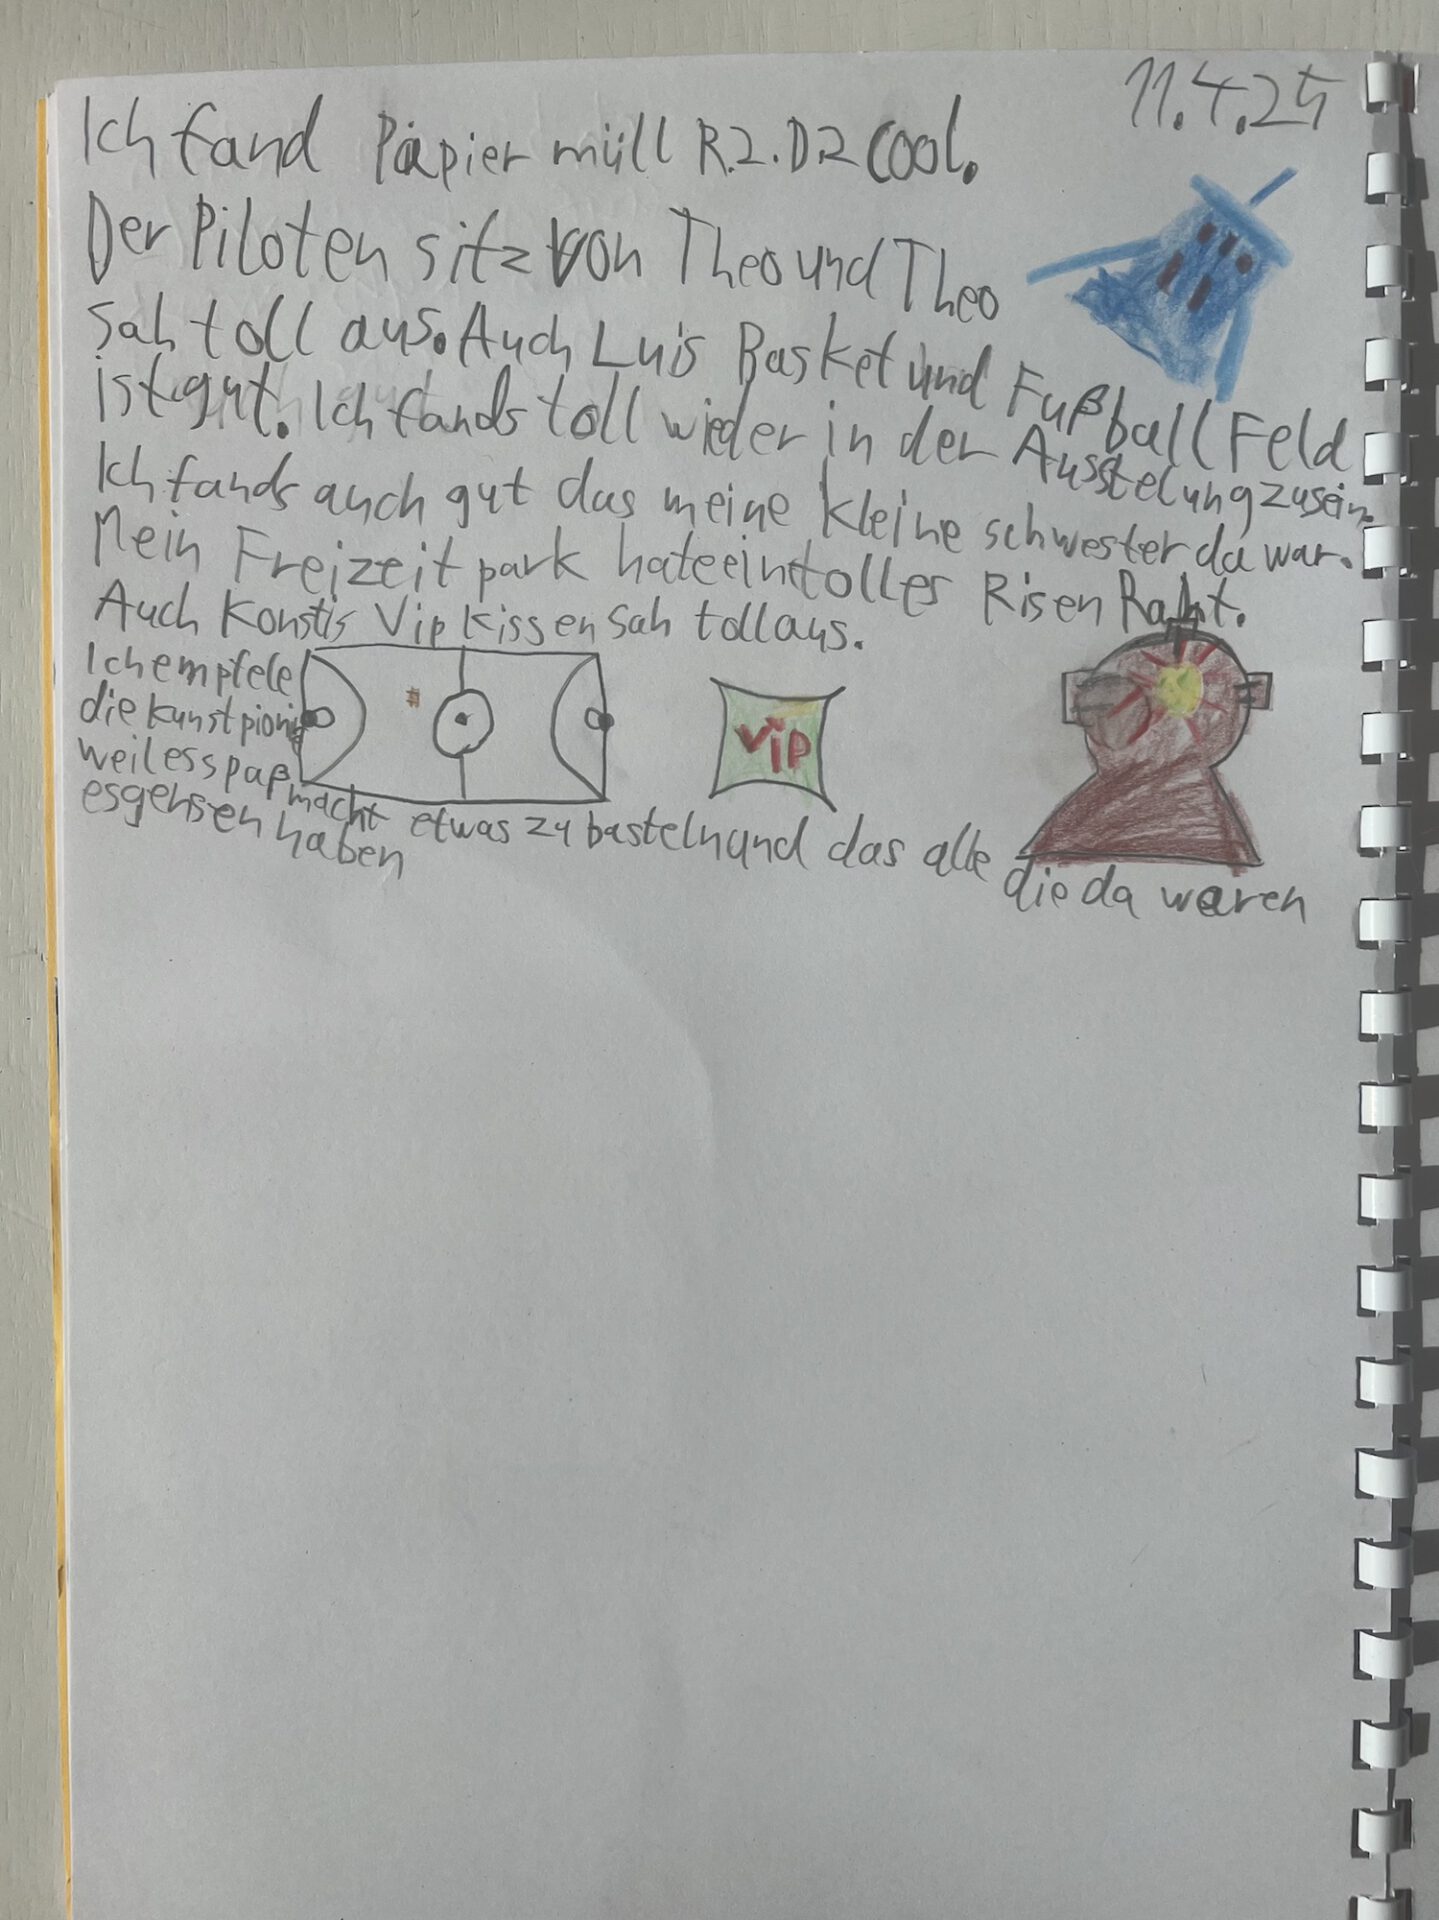 11.4.25
Ich fand Papier müll R.2.D.2 cool.
Der Piloten sitz von Theo und Theo
sah toll aus. Auch Luis Basket und Fußball Feld
ist gut. Ich fands toll wieder in der Ausstelung zusein.
Ich fands auch gut das meine kleine schwester da war.
Mein Freizeit park hate ein tolles Risen Raht.
Auch Konstis Vip kissen sah toll aus.
Ich empfele
die kunst pionir
weil es spaß macht etwas zu basteln und das alle die da waren
es gehsen haben
Vip